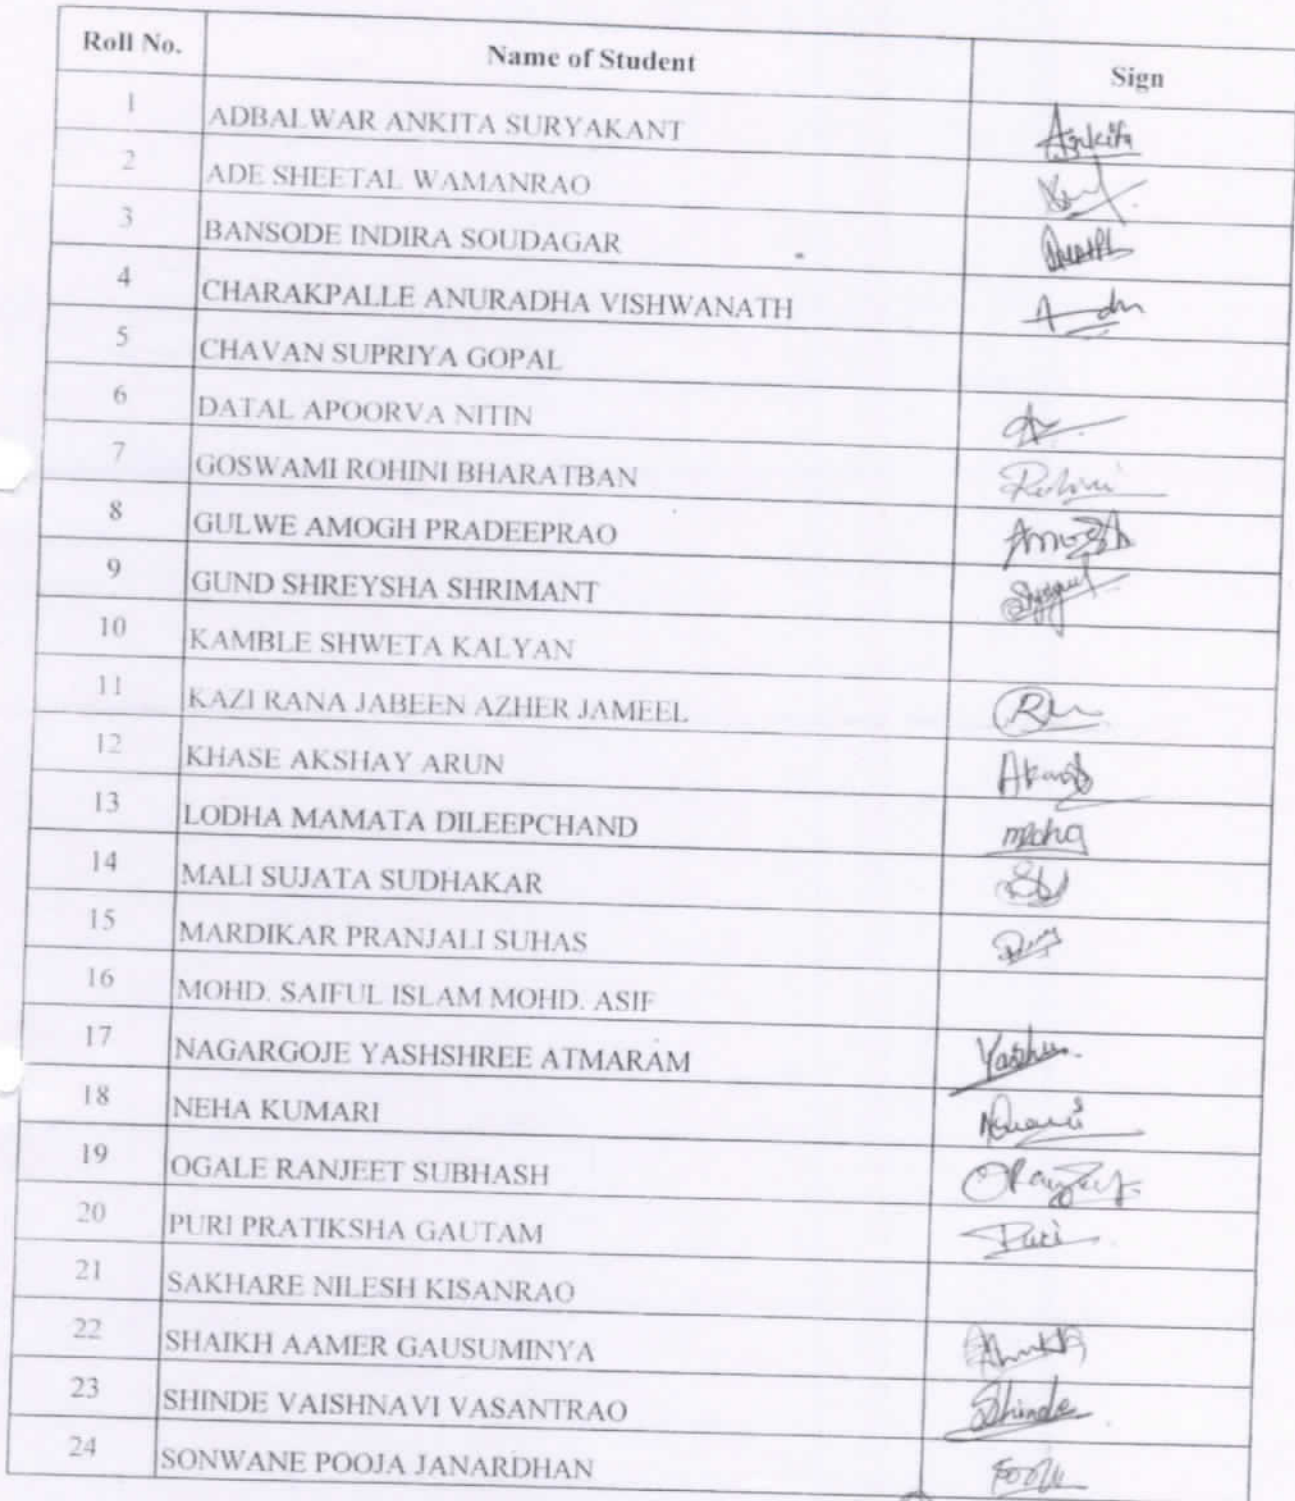 Roll No. Name of Student Sign
1 ADBALWAR ANKITA SURYAKANT Ankita
2 ADE SHEETAL WAMANRAO
3 BANSODE INDIRA SOUDAGAR
4 CHARAKPALLE ANURADHA VISHWANATH
5 CHAVAN SUPRIYA GOPAL
6 DATAL APOORVA NITIN
7 GOSWAMI ROHINI BHARATBAN Rohini
8 GULWE AMOGH PRADEEPRAO Amogh
9 GUND SHREYSHA SHRIMANT
10 KAMBLE SHWETA KALYAN
11 KAZI RANA JABEEN AZHER JAMEEL
12 KHASE AKSHAY ARUN
13 LODHA MAMATA DILEEPCHAND
14 MALI SUJATA SUDHAKAR
15 MARDIKAR PRANJALI SUHAS
16 MOHD. SAIFUL ISLAM MOHD. ASIF
17 NAGARGOJE YASHSHREE ATMARAM Yashu
18 NEHA KUMARI
19 OGALE RANJEET SUBHASH ORanjeet
20 PURI PRATIKSHA GAUTAM Puri
21 SAKHARE NILESH KISANRAO
22 SHAIKH AAMER GAUSUMINYA
23 SHINDE VAISHNAVI VASANTRAO Shinde
24 SONWANE POOJA JANARDHAN